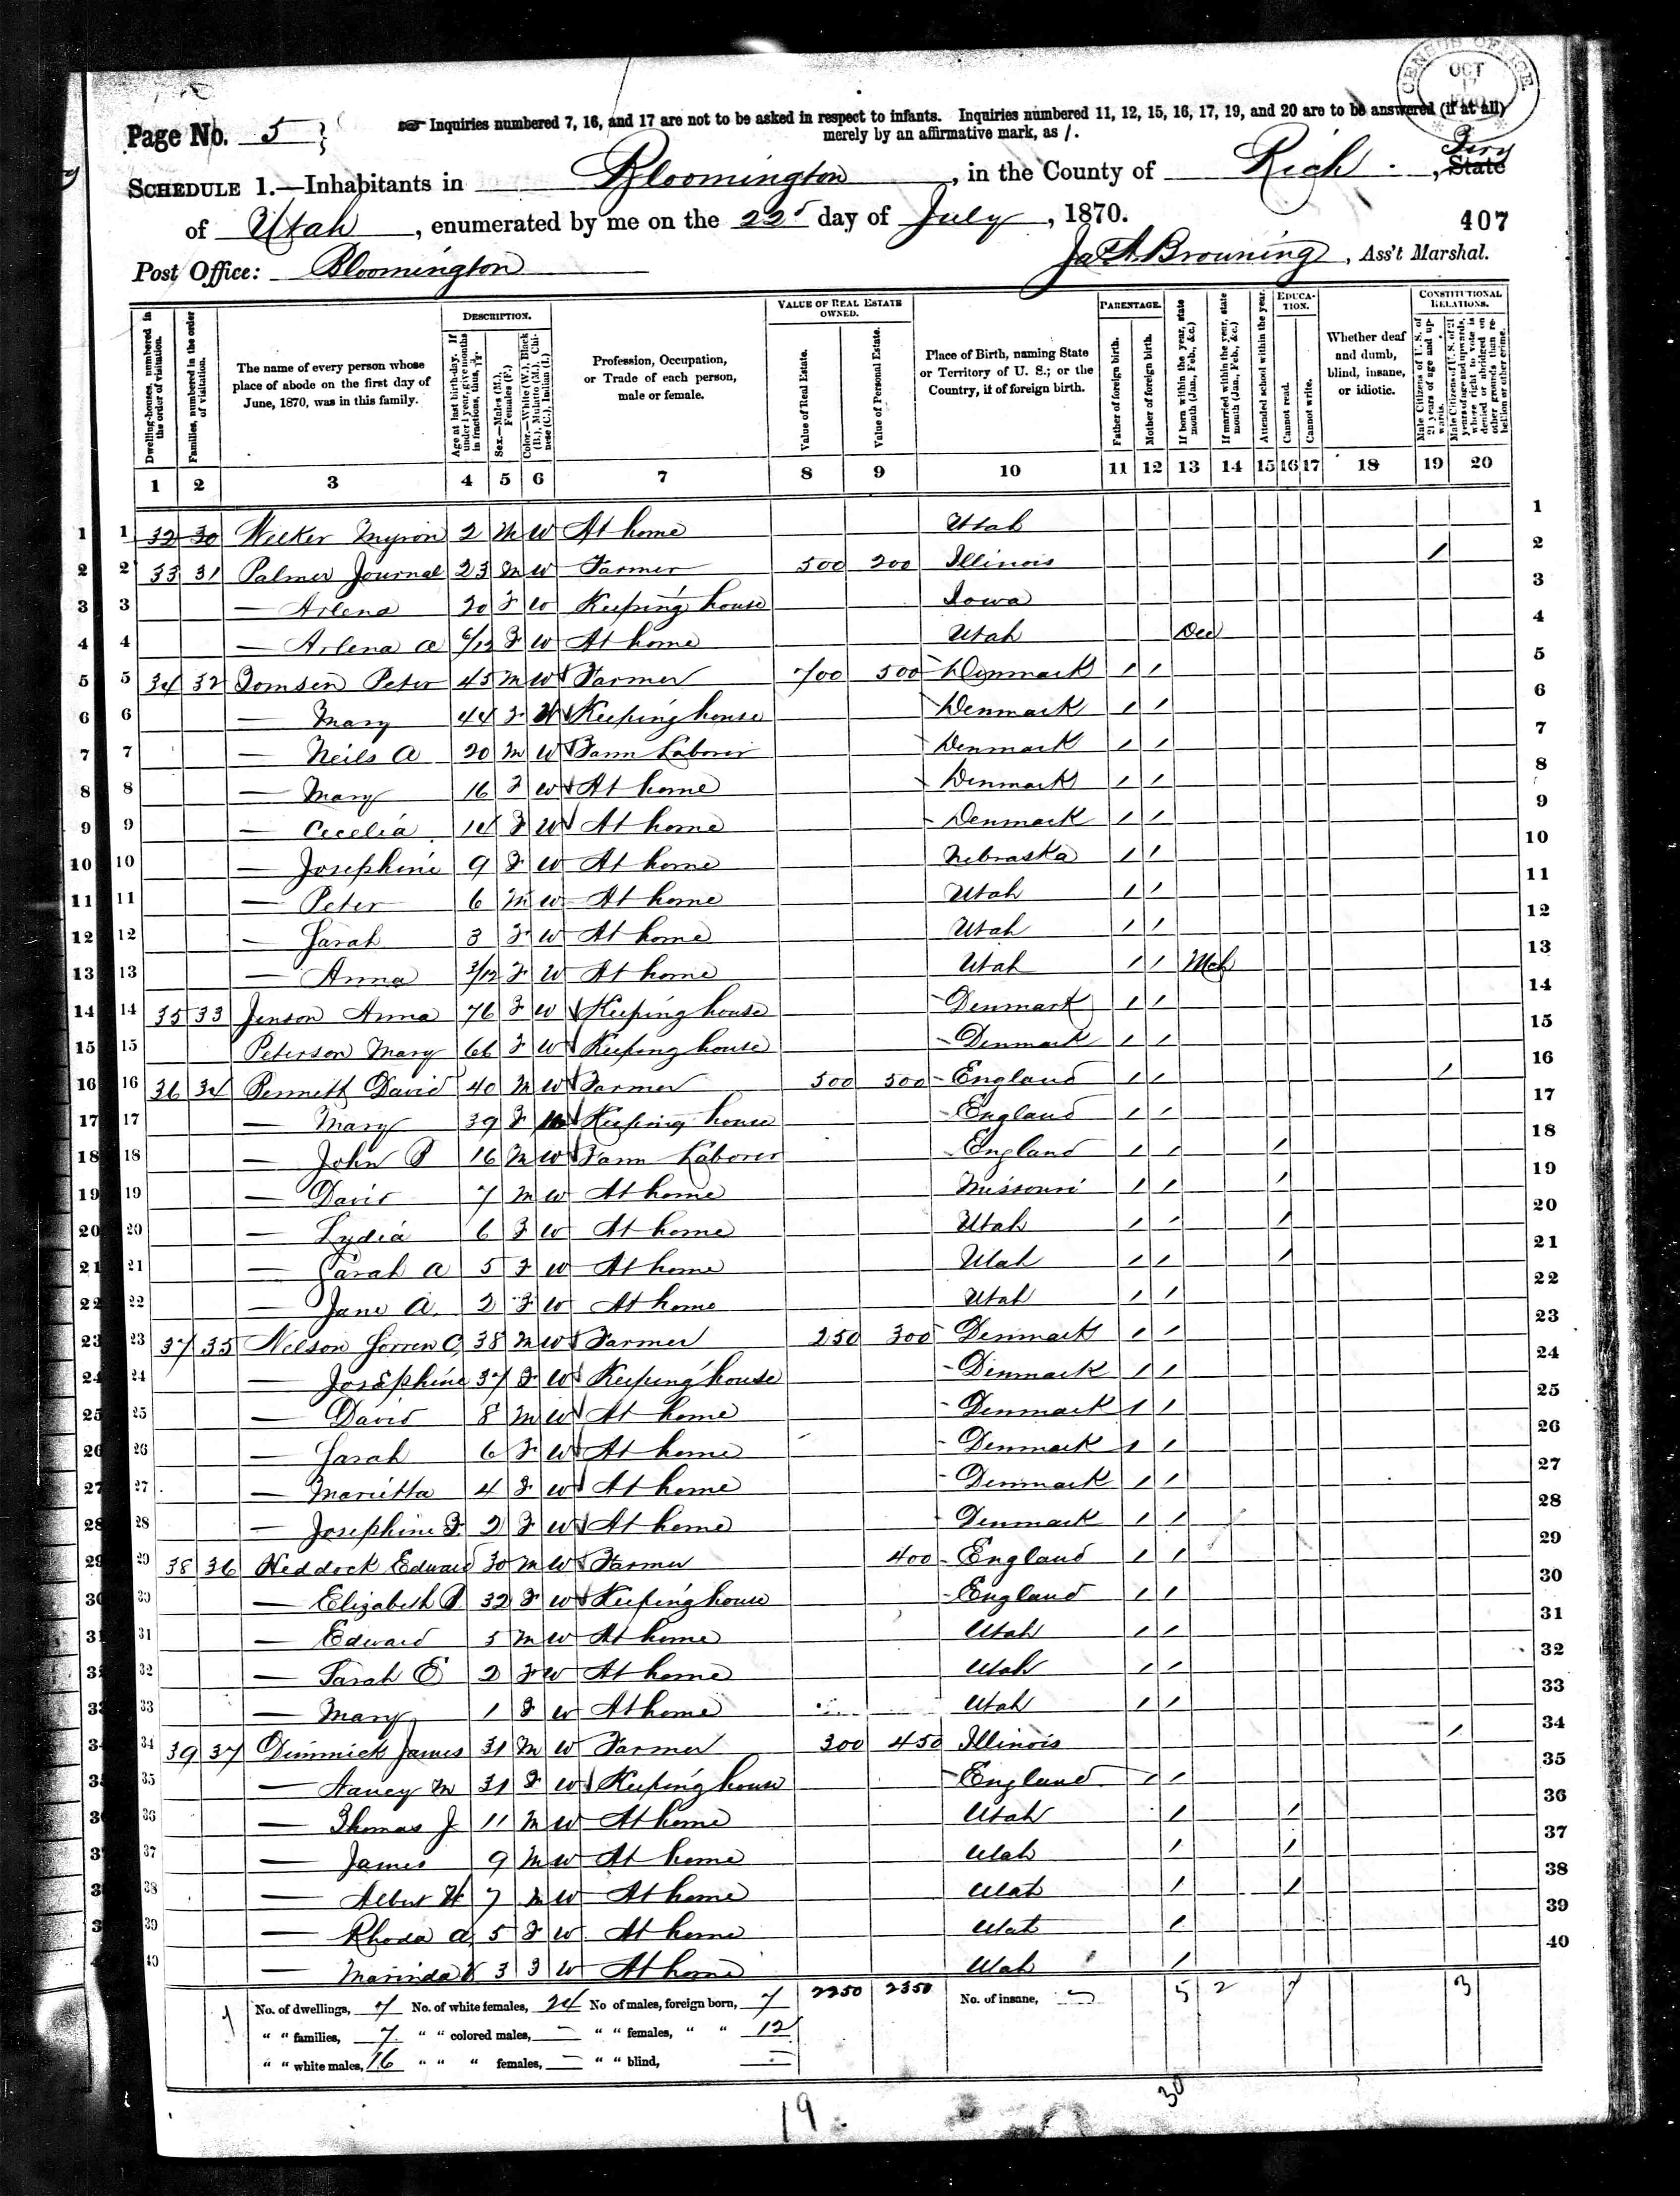 CENSUS OFFICE
OCT
17
Page No. 5
Inquiries numbered 7, 16, and 17 are not to be asked in respect to infants. Inquiries numbered 11, 12, 15, 16, 17, 19, and 20 are to be answered (if at all)
merely by an affirmative mark, as /.
SCHEDULE 1.—Inhabitants in Bloomington, in the County of Rich, State
of Utah, enumerated by me on the 22d day of July, 1870.
407
Post Office: Bloomington
Jas A Browning, Ass't Marshal.
Dwelling-houses, numbered in the order of visitation.
Families, numbered in the order of visitation.
The name of every person whose place of abode on the first day of June, 1870, was in this family.
DESCRIPTION.
Age at last birth-day. If under 1 year, give months in fractions, thus, 3/12.
Sex.—Males (M.), Females (F.)
Color.—White (W.), Black (B.), Mulatto (M.), Chinese (C.), Indian (I.)
Profession, Occupation, or Trade of each person, male or female.
VALUE OF REAL ESTATE OWNED.
Value of Real Estate.
Value of Personal Estate.
Place of Birth, naming State or Territory of U. S.; or the Country, if of foreign birth.
PARENTAGE.
Father of foreign birth.
Mother of foreign birth.
If born within the year, state month (Jan., Feb., &c.)
If married within the year, state month (Jan., Feb., &c.)
Attended school within the year.
EDUCATION.
Cannot read.
Cannot write.
Whether deaf and dumb, blind, insane, or idiotic.
CONSTITUTIONAL RELATIONS.
Male Citizens of U. S. of 21 years of age and upwards.
Male Citizens of U. S. of 21 years of age and upwards, whose right to vote is denied or abridged on other grounds than rebellion or other crime.
1 2 3 4 5 6 7 8 9 10 11 12 13 14 15 16 17 18 19 20
1 1 32 30 Welker Myron 2 M W At home Utah 1
2 2 33 31 Palmer Journal 23 M W Farmer 500 200 Illinois / 2
3 3 — Arlena 20 F W Keeping house Iowa 3
4 4 — Arlena A 6/12 F W At home Utah Dec 4
5 5 34 32 Tomsen Peter 45 M W Farmer 700 500 Denmark / / 5
6 6 — Mary 44 F W Keeping house Denmark / / 6
7 7 — Neils A 20 M W Farm Laborer Denmark / / 7
8 8 — Mary 16 F W At home Denmark / / 8
9 9 — Cecelia 14 F W At home Denmark / / 9
10 10 — Josephine 9 F W At home Nebraska / / 10
11 11 — Peter 6 M W At home Utah / / 11
12 12 — Sarah 3 F W At home Utah / / 12
13 13 — Anna 3/12 F W At home Utah / / Mch 13
14 14 35 33 Jenson Anna 76 F W Keeping house Denmark / / 14
15 15 Peterson Mary 66 F W Keeping house Denmark / / 15
16 16 36 34 Bennett David 40 M W Farmer 500 500 England / / / 16
17 17 — Mary 39 F W Keeping house England / / 17
18 18 — John B 16 M W Farm Laborer England / / / 18
19 19 — David 7 M W At home Missouri / / / 19
20 20 — Lydia 6 F W At home Utah / / / 20
21 21 — Sarah A 5 F W At home Utah / / / 21
22 22 — Jane A 2 F W At home Utah / / 22
23 23 37 35 Nelson Sorren C 38 M W Farmer 250 300 Denmark / / 23
24 24 — Josephine 37 F W Keeping house Denmark / / 24
25 25 — David 8 M W At home Denmark / / 25
26 26 — Sarah 6 F W At home Denmark / / 26
27 27 — Marietta 4 F W At home Denmark / / 27
28 28 — Josephine F 2 F W At home Denmark / / 28
29 29 38 36 Heddock Edward 30 M W Farmer 400 England / / 29
30 30 — Elizabeth B 32 F W Keeping house England / / 30
31 31 — Edward 5 M W At home Utah / / 31
32 32 — Sarah E 2 F W At home Utah / / 32
33 33 — Mary 1 F W At home Utah / / 33
34 34 39 37 Dimmick James 31 M W Farmer 300 450 Illinois / 34
35 35 — Nancy M 31 F W Keeping house England / / 35
36 36 — Thomas J 11 M W At home Utah / / 36
37 37 — James 9 M W At home Utah / / 37
38 38 — Albert H 7 M W At home Utah / / 38
39 39 — Rhoda A 5 F W At home Utah / 39
40 40 — Marinda 3 F W At home Utah / 40
No. of dwellings, 7 No. of white females, 24 No of males, foreign born, 7 2250 2350 No. of insane, 5 2 7 3
" " families, 7 " " colored males, — " " females, " " 12
" " white males, 16 " " " females, — " " blind, —
19
30